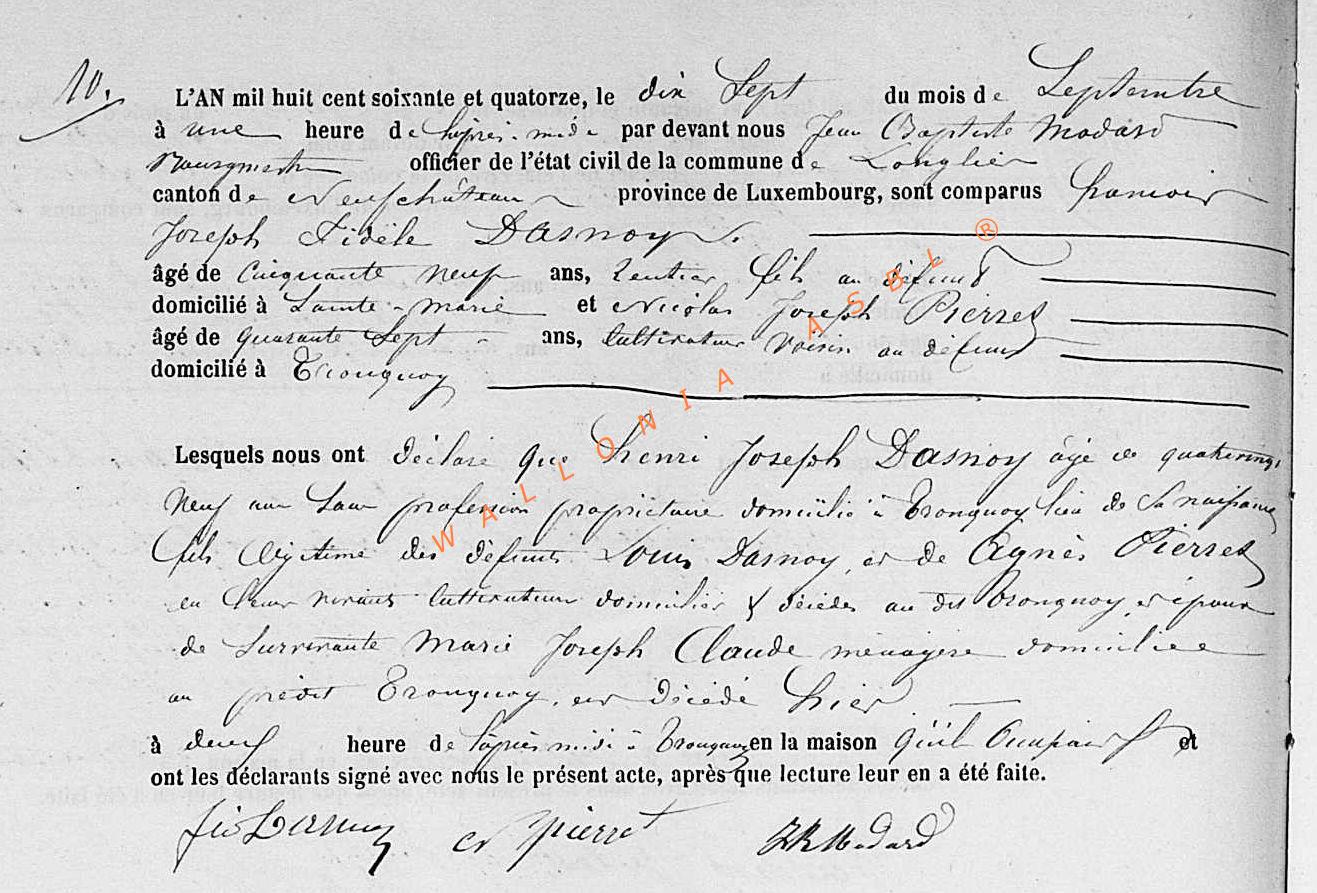 10.
L'AN mil huit cent soixante et quatorze, le dix Sept du mois de Septembre
à une heure de l'après-midi par devant nous Jean Baptiste Modard
Bourgmestre officier de l'état civil de la commune de Longlier
canton de Neufchâteau province de Luxembourg, sont comparus
Joseph Fidèle Dasnoy
âgé de Cinquante neuf ans, rentier fils au défunt
domicilié à Sainte-Marie et Nicolas Joseph Pierret
âgé de quarante Sept ans, Cultivateur voisin au défunt
domicilié à Tronquoy
Lesquels nous ont déclaré que henri Joseph Dasnoy âgé de quatrevingt
neuf ans Sans profession propriétaire domicilié à Tronquoy lieu de Sa naissance
fils légitime des défunts Louis Dasnoy, et de Agnès Pierret
en leur vivant Cultivateurs domiciliés & décédés au dit Tronquoy, et époux
de Survivante Marie Joseph Claude ménagère domiciliée
au prédit Tronquoy, est décédé hier
à deux heure de l'après midi à Tronquoy en la maison qu'il Occupait et
ont les déclarants signé avec nous le présent acte, après que lecture leur en a été faite.
WALLONIA ASBL ®
Dasnoy N Pierret JB Modard